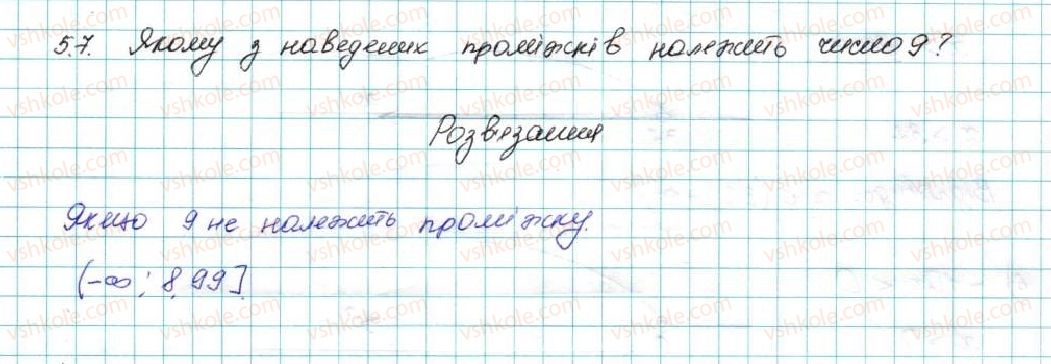 5.7. Якому з наведених проміжків належить число 9?
Розв'язання
Якщо 9 не належить проміжку.
(-∞; 8,99]